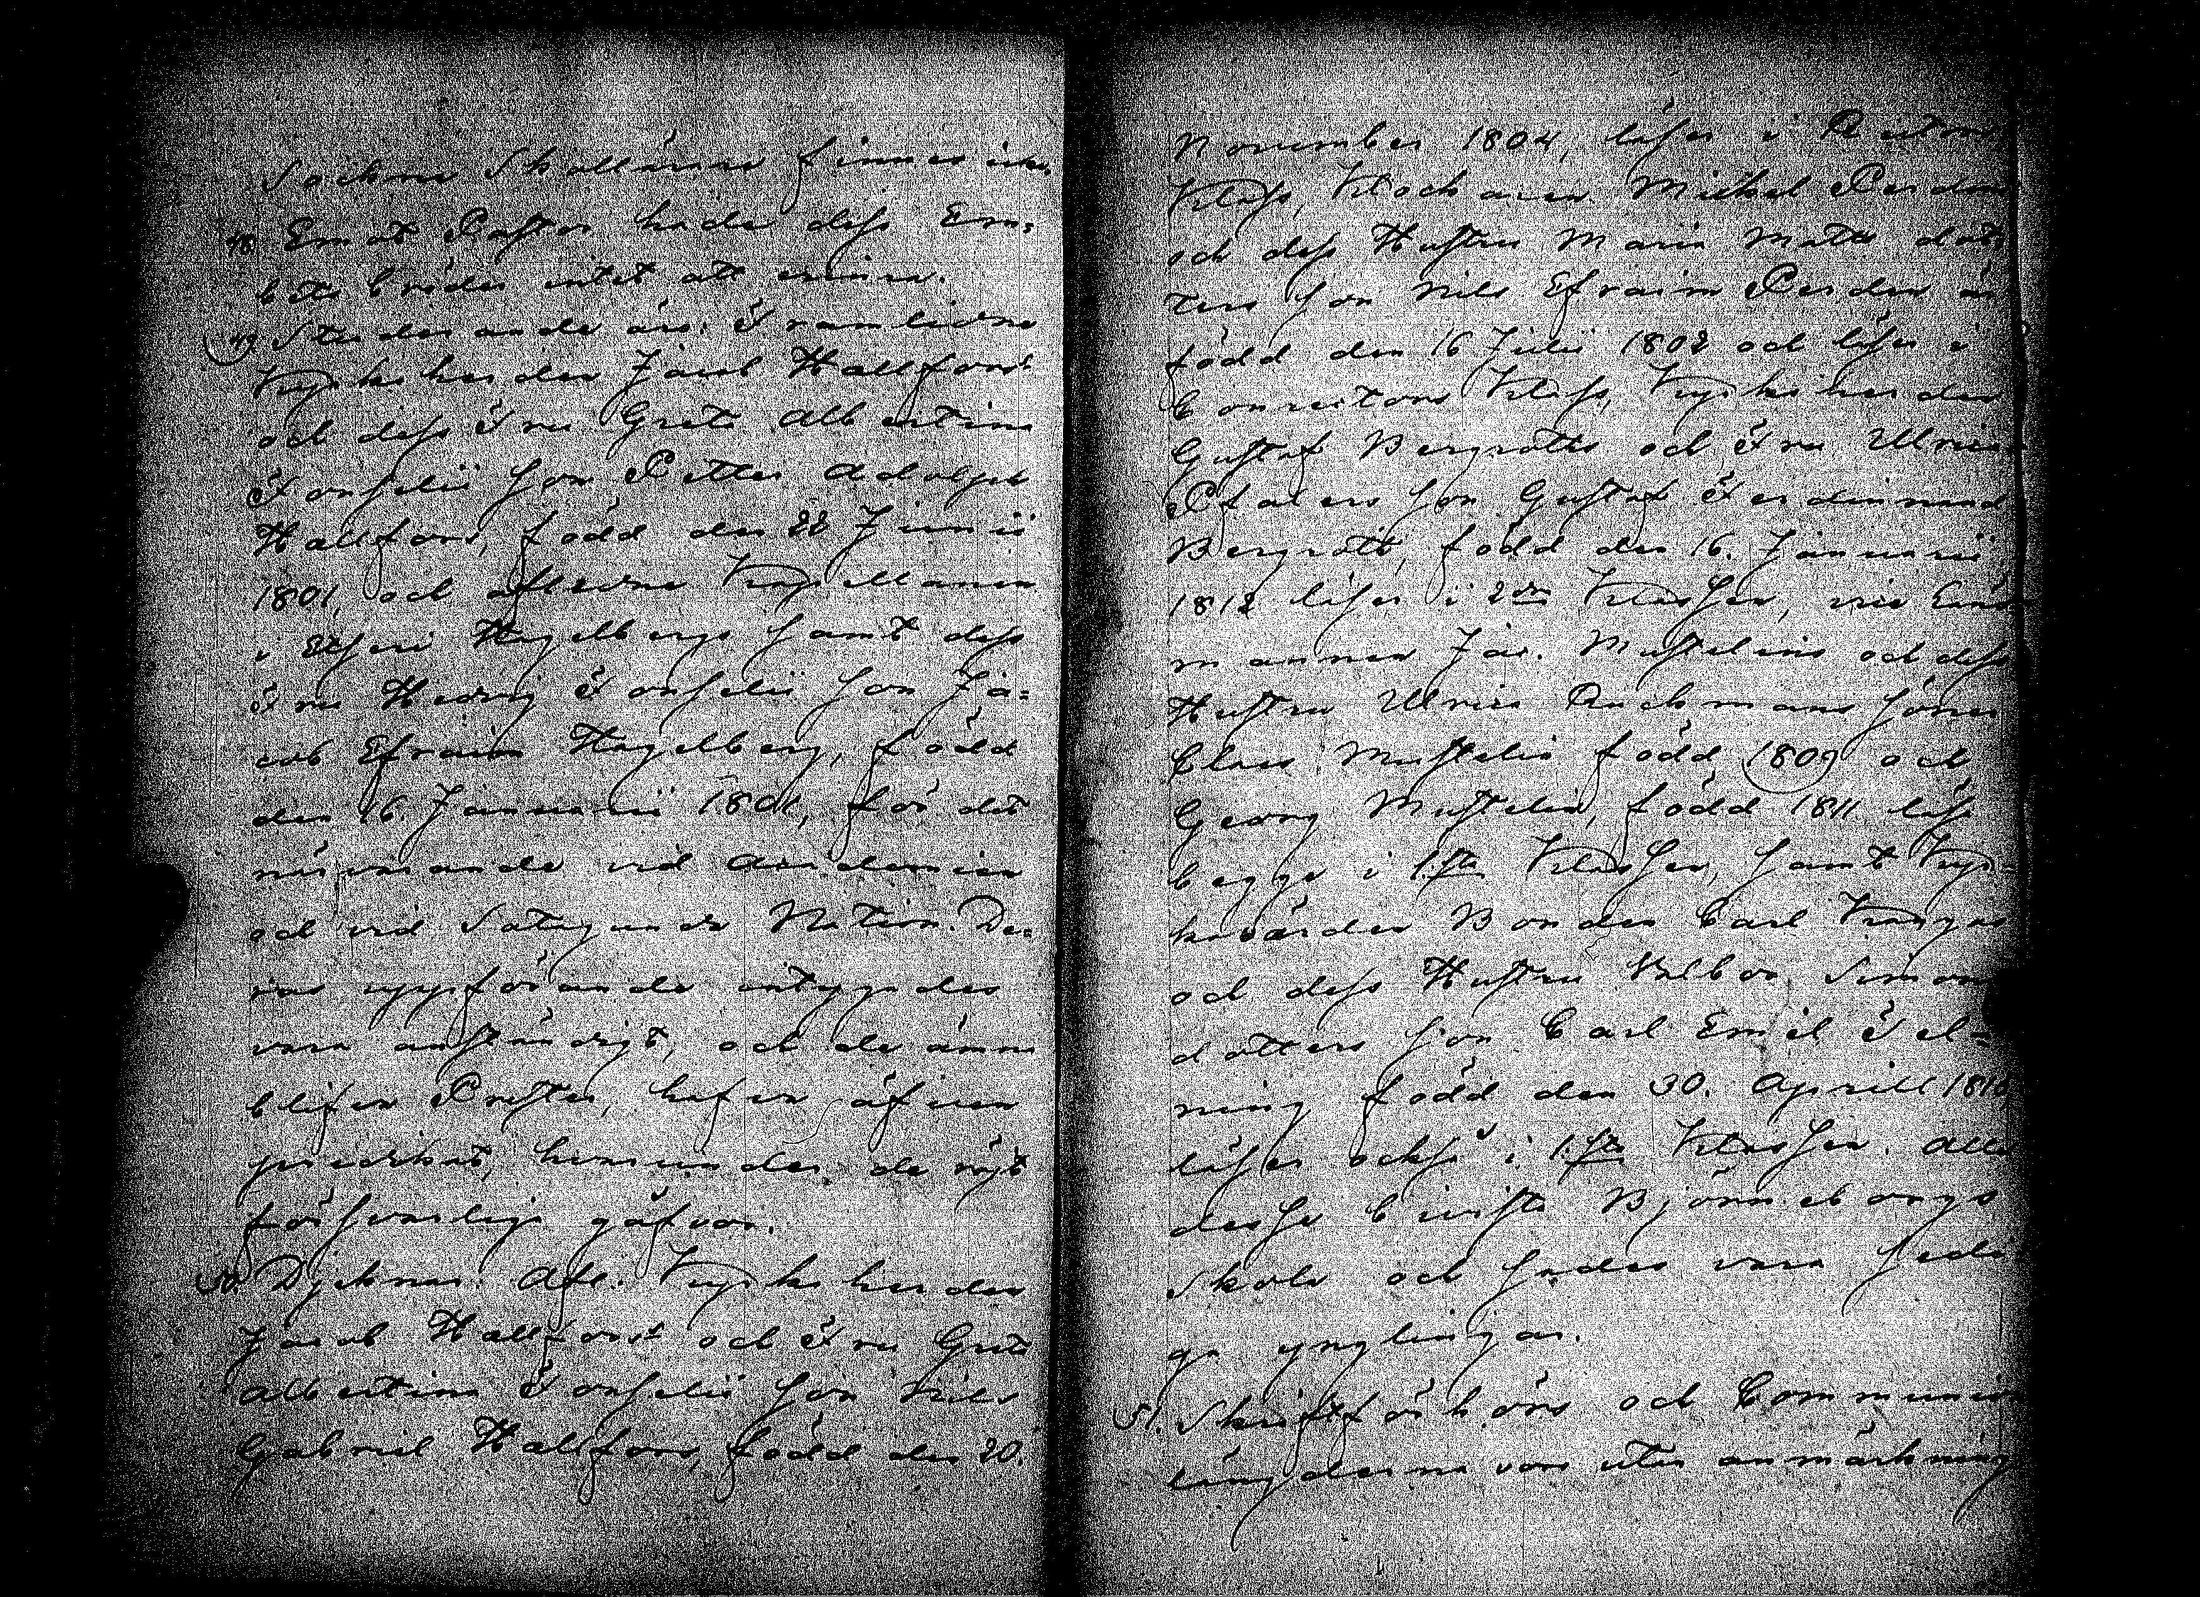 Sockne Skollärare finnes icke.
48. Emot Pastor hade dess Em-
bets bröder intet att erinra.
49. Studerande äro: Framledne
Kyrkoherden Jacob Hallfors
och dess Fru Greta Albertina
Fonselii son Petter Adolph
Hallfors, född den 22 Junii
1801, och afledne Capellanen
i Etseri Hagelbergs samt dess
Fru Hedvig Fonselii son Ja-
cob Efraim Hagelberg, född
den 16. Januarii 1801, för det
närvarande vid Academien
och vid Satagunda Nation. De-
ras uppförande intygades
vara anständigt, och de ämna
blifva Prester, hafva äfven
predikat, hvarunder de röjt
försvarliga gåfvor.
50. Djeknar: Afl. Kyrkoherden
Jacob Hallfors och Fru Greta
Albertina Fonselii son Nils
Gabriel Hallfors, född den 20.
November 1804, läser i Rectors
Klass, Klockaren Michel Perdén
och dess Hustru Maria Matts dot-
ters son Nils Efraim Perdén är
född den 16 Julii 1802 och läser i
Conrectors Klass, Kyrkoherden
Gustaf Bergroths och Fru Ulrica
Pfalers son Gustaf Ferdinand
Bergroth, född den 16. Januarii
1812 läser i 2dra Klassen, vice Länds
mannen Jac. Mustelins och dess
Hustru Ulrica Ruckmans söner
Claes Mustelin född 1809 och
Georg Mustelin, född 1811 läsa
begge i 1sta Klassen, samt Kyr-
kovärden Bonden Carl
och dess Hustru Valbor Simons
dotters son Carl Emil Fel-
ning född den 30. Aprill 1810
läser också i 1sta Klassen. Alla
desse bivista Björneborgs
Skola och sades vara sedi
ga ynglingar.
51. Skriftförhörs och Communion
längderna voro utan anmärkning